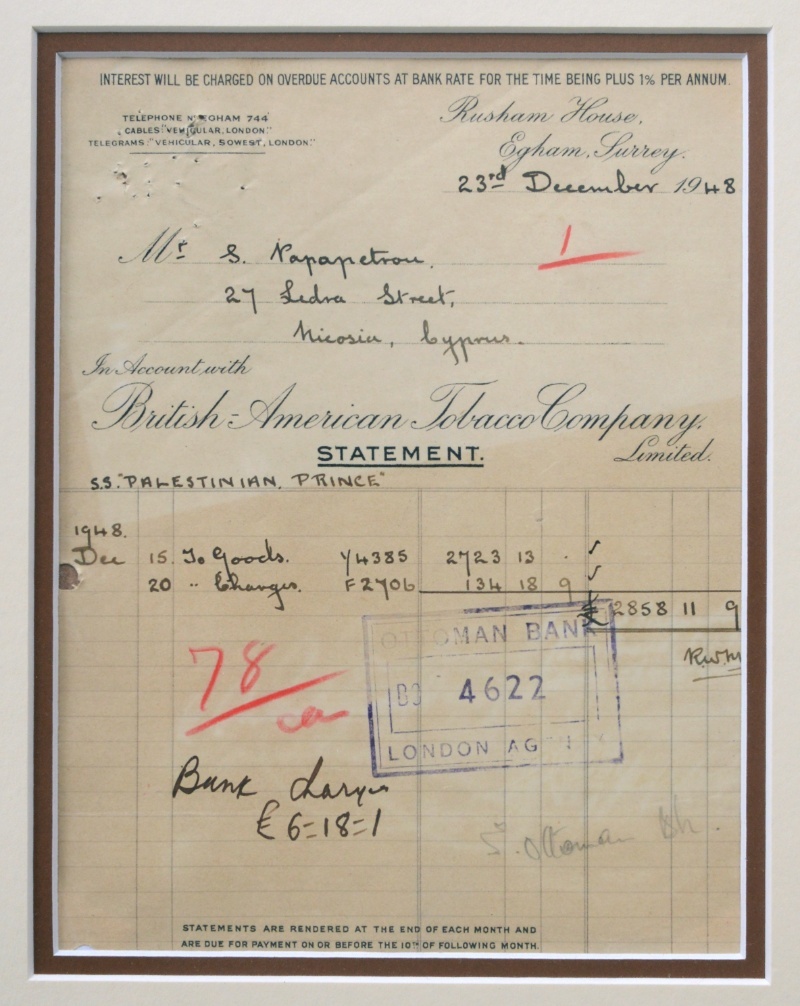 INTEREST WILL BE CHARGED ON OVERDUE ACCOUNTS AT BANK RATE FOR THE TIME BEING PLUS 1% PER ANNUM.
TELEPHONE Nº EGHAM 744
CABLES "VEHICULAR, LONDON."
TELEGRAMS: "VEHICULAR, SOWEST, LONDON."
Rusham House,
Egham, Surrey.
23rd December 1948
1
Mr S. Papapetrou.
27 Ledra Street,
Nicosia, Cyprus.
In Account with
British-American Tobacco Company,
Limited.
STATEMENT.
S.S. "PALESTINIAN PRINCE"
1948.
Dec 15. To Goods. Y4385 2723 13 . ✓
20 " Charges. F2706 134 18 9 ✓
£ 2858 11 9
OTTOMAN BANK
4622
LONDON AGENCY
78
Bank Charges
£ 6=18=1
Ottoman Bk.
STATEMENTS ARE RENDERED AT THE END OF EACH MONTH AND
ARE DUE FOR PAYMENT ON OR BEFORE THE 10TH OF FOLLOWING MONTH.